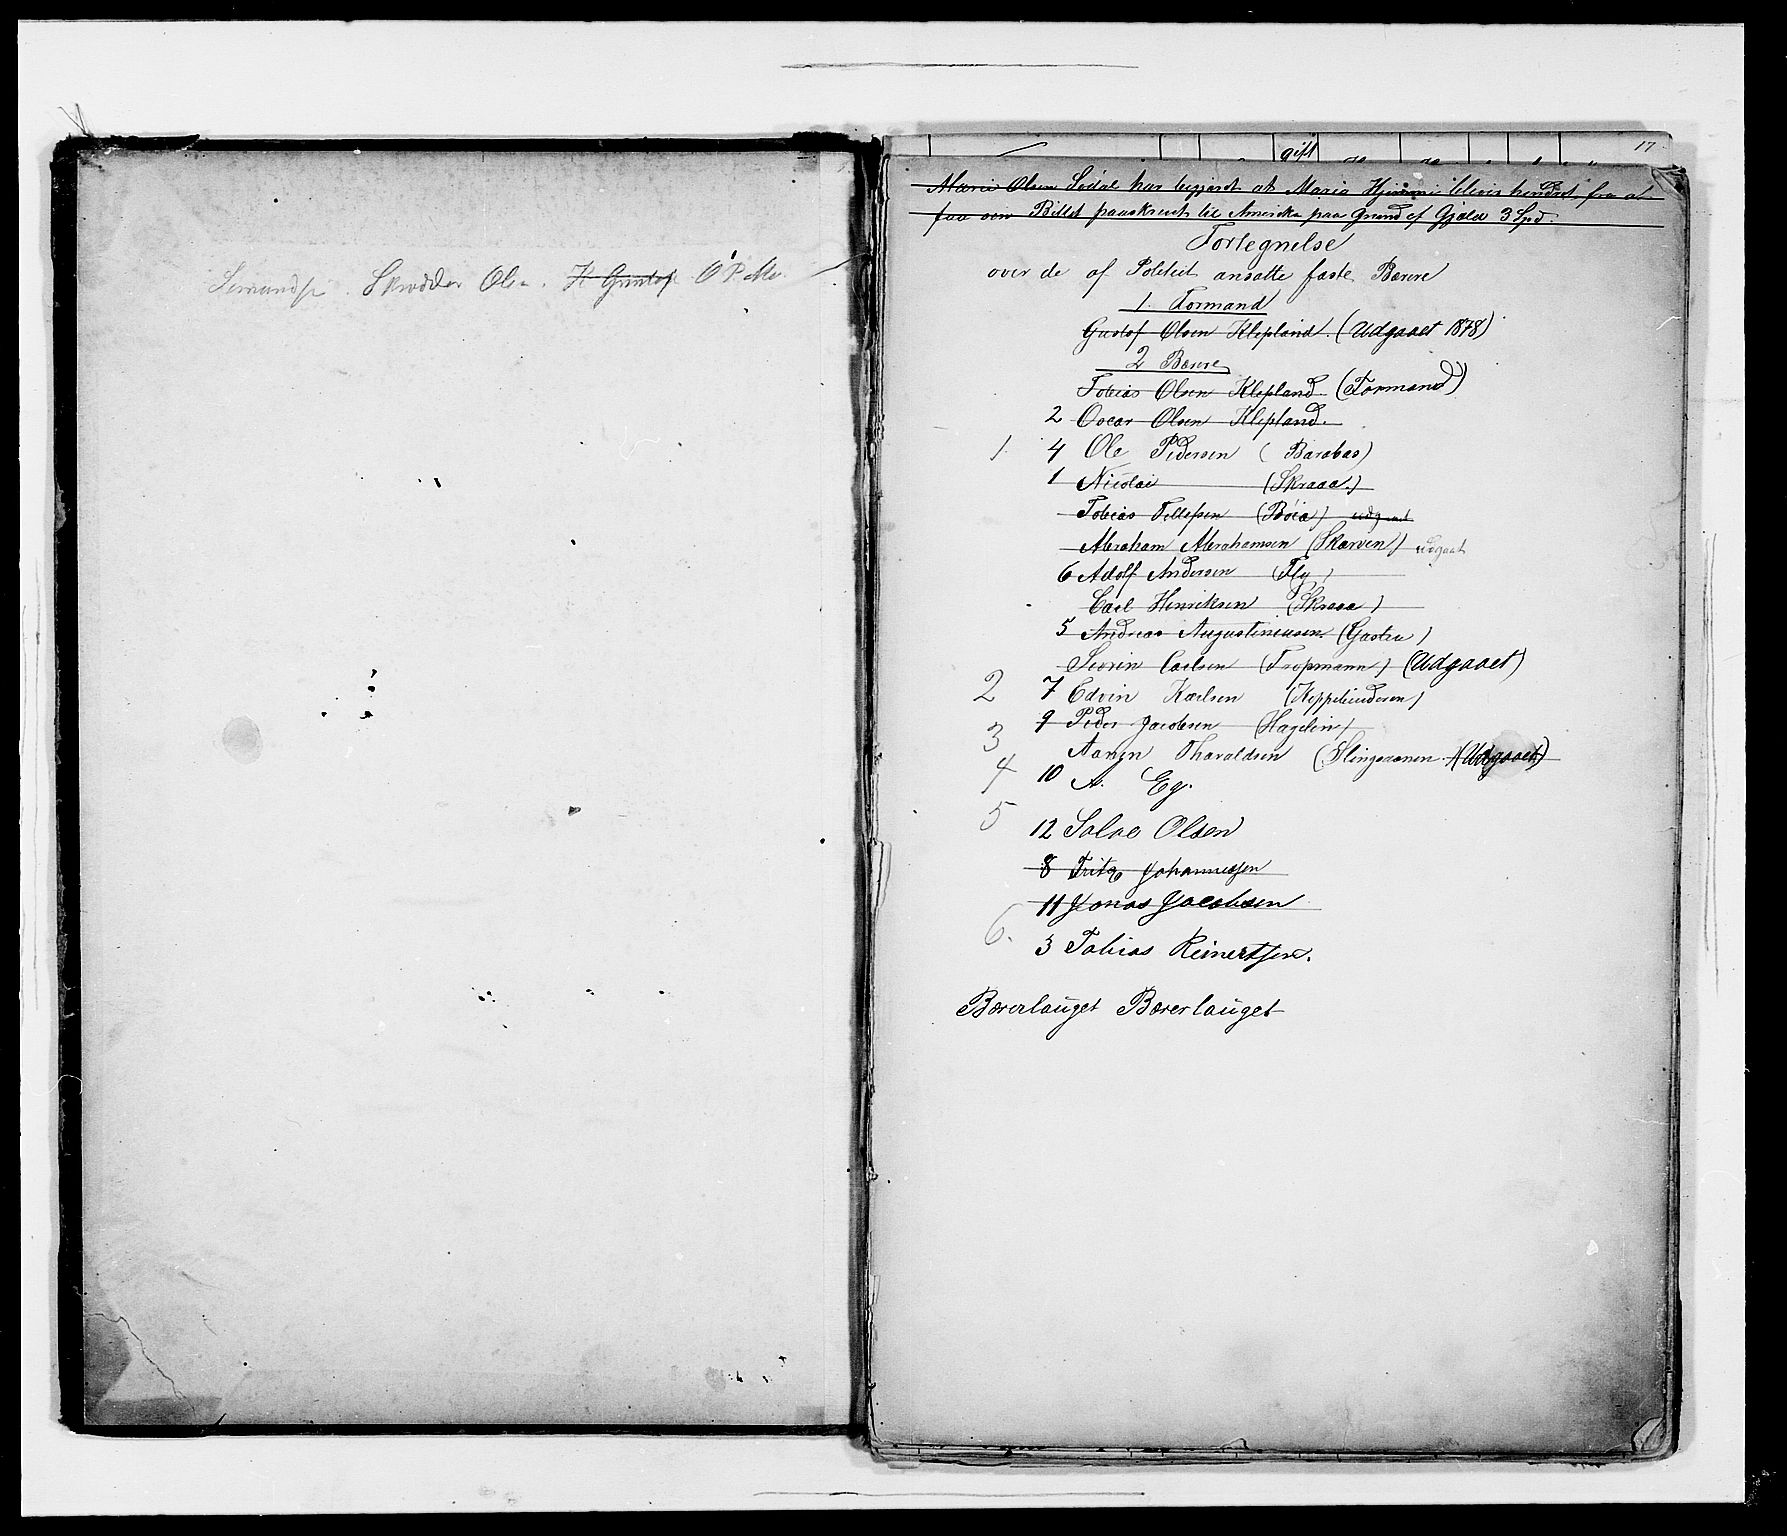 Skrædder Olsen. O P Mo
gift
17
Marie Olsen Sødal har begjært at Maria Hjemmi blivir hindret fra at
faa sin Billet paaskrevet til Amerika paa Grund af Gjæld 3 Spd.
Fortegnelse
over de af Politiet ansatte faste Bærere
1. Formand
Gustof Olsen Klepland. (Udgaaet 1878)
2 Bærere
Tobias Olsen Klepland (Formand)
2 Oscar Olsen Klepland.
1 4 Ole Pedersen (Barabas)
1 Nicolai (Skraaa.)
Tobias Tellefsen (Böia) udgaaet
Abraham Abrahamsen (Skarven) udgaat
6 Adolf Andersen (Fly)
Carl Henriksen (Skraaa)
5 Andreas Augustiniussen (Gastra)
Sevrin Carlsen (Tropmann) (Udgaaet)
2 7 Edvin Karlsen (Koppelunderen)
3 9 Peder Jacobsen (Hagelin)
Aanen Tharaldsen (Slingaanen) (Udgaaet)
4 10 A. Eg.
5 12 Salve Olsen
8 Fritz Johannessen
11 Jonas Jacobsen
6. 3 Tobias Reinertsen.
Bærerlauget Bærerlauget